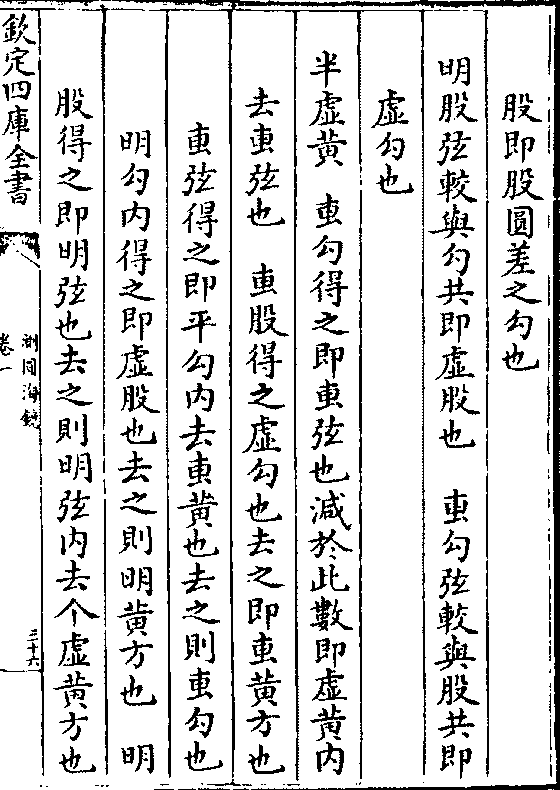 股即股圓差之勾也
明股弦較與勾共即虛股也　叀勾弦較與股共即
虛勾也
半虛黃　叀勾得之即叀弦也減於此數即虛黃内
去叀弦也　叀股得之虛勾也去之即叀黃方也
叀弦得之即平勾内去叀黃也去之則叀勾也
明勾内得之即虛股也去之則明黃方也　明
股得之即明弦也去之則明弦内去个虛黃方也
欽定四庫全書
測圓海鏡
卷一
三十六